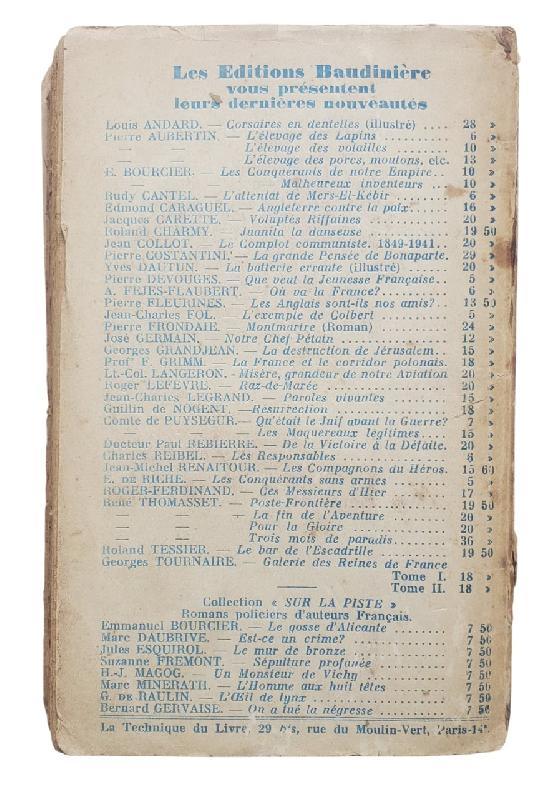 Les Editions Baudinière
vous présentent
leurs dernières nouveautés
Louis ANDARD. — Corsaires en dentelles (illustré) .... 28 »
Pierre AUBERTIN. — L'élevage des Lapins .......... 6 »
— — L'élevage des volailles ......... 10 »
— — L'élevage des porcs, moutons, etc. 13 »
E. BOURCIER. — Les Conquerants de notre Empire.. 10 »
— Malheureux inventeurs ... 10 »
Rudy CANTEL. — L'attentat de Mers-El-Kébir ........ 6 »
Edmond CARAGUEL. — Angleterre contre la paix...... 16 »
Jacques CARETTE. — Voluptés Riffaines ............ 20 »
Roland CHARMY. — Juanita la danseuse ............ 19 50
Jean COLLOT. — Le Complot communiste. 1849-1941.. 20 »
Pierre COSTANTINI. — La grande Pensée de Bonaparte. 29 »
Yves DAUTUN. — La batterie errante (illustré) ...... 20 »
Pierre DEVOUGES. — Que veut la Jeunesse Française.. 5 »
A. FEJES-FLAUBERT. — Où va la France?.......... 6 »
Pierre FLEURINES. — Les Anglais sont-ils nos amis? . 13 50
Jean-Charles FOL. — L'exemple de Colbert ........ 5 »
Pierre FRONDAIE. — Montmartre (Roman) .......... 24 »
José GERMAIN. — Notre Chef Pétain .............. 12 »
Georges GRANDJEAN. — La destruction de Jérusalem.. 15 »
Prof' F. GRIMM. — La France et le corridor polonais. 18 »
Lt.-Col. LANGERON. - Misère, grandeur de notre Aviation 20 »
Roger LEFEVRE. — Raz-de-Marée .................. 20 »
Jean-Charles LEGRAND. — Paroles vivantes .......... 15 »
Guillin de NOGENT. — Resurrection ................ 18 »
Comte de PUYSEGUR. — Qu'était le Juif avant la Guerre? 7 »
— — Les Maquereaux légitimes.... 15 »
Docteur Paul REBIERRE. — De la Victoire à la Défaite. 20 »
Charles REIBEL. — Les Responsables ................ 8 »
Jean-Michel RENAITOUR. — Les Compagnons du Héros. 15 60
E. DE RICHE. — Les Conquérants sans armes ........ 5 »
ROGER-FERDINAND. — Ces Messieurs d'Hier .......... 17 »
René THOMASSET. — Poste-Frontière ................ 19 50
— — La fin de l'Aventure .......... 20 »
— — Pour la Gloire ................ 20 »
— — Trois mois de paradis.......... 36 »
Roland TESSIER. — Le bar de l'Escadrille ............ 19 50
Georges TOURNAIRE. — Galerie des Reines de France
Tome I. 18 »
Tome II. 18 »
Collection « SUR LA PISTE »
Romans policiers d'auteurs Français.
Emmanuel BOURCIER. — Le gosse d'Alicante .......... 7 50
Marc DAUBRIVE. — Est-ce un crime? ................ 7 50
Jules ESQUIROL. — Le mur de bronze .............. 7 50
Suzanne FREMONT. — Sépulture profanée ............ 7 50
H.-J. MAGOG. — Un Monsieur de Vichy .............. 7 50
Marc MINERATH. — L'Homme aux huit têtes .......... 7 50
G. DE RAULIN. — L'Œil de lynx .................... 7 50
Bernard GERVAISE. — On a tué la négresse .......... 7 50
La Technique du Livre, 29 bis, rue du Moulin-Vert, Paris-14e.